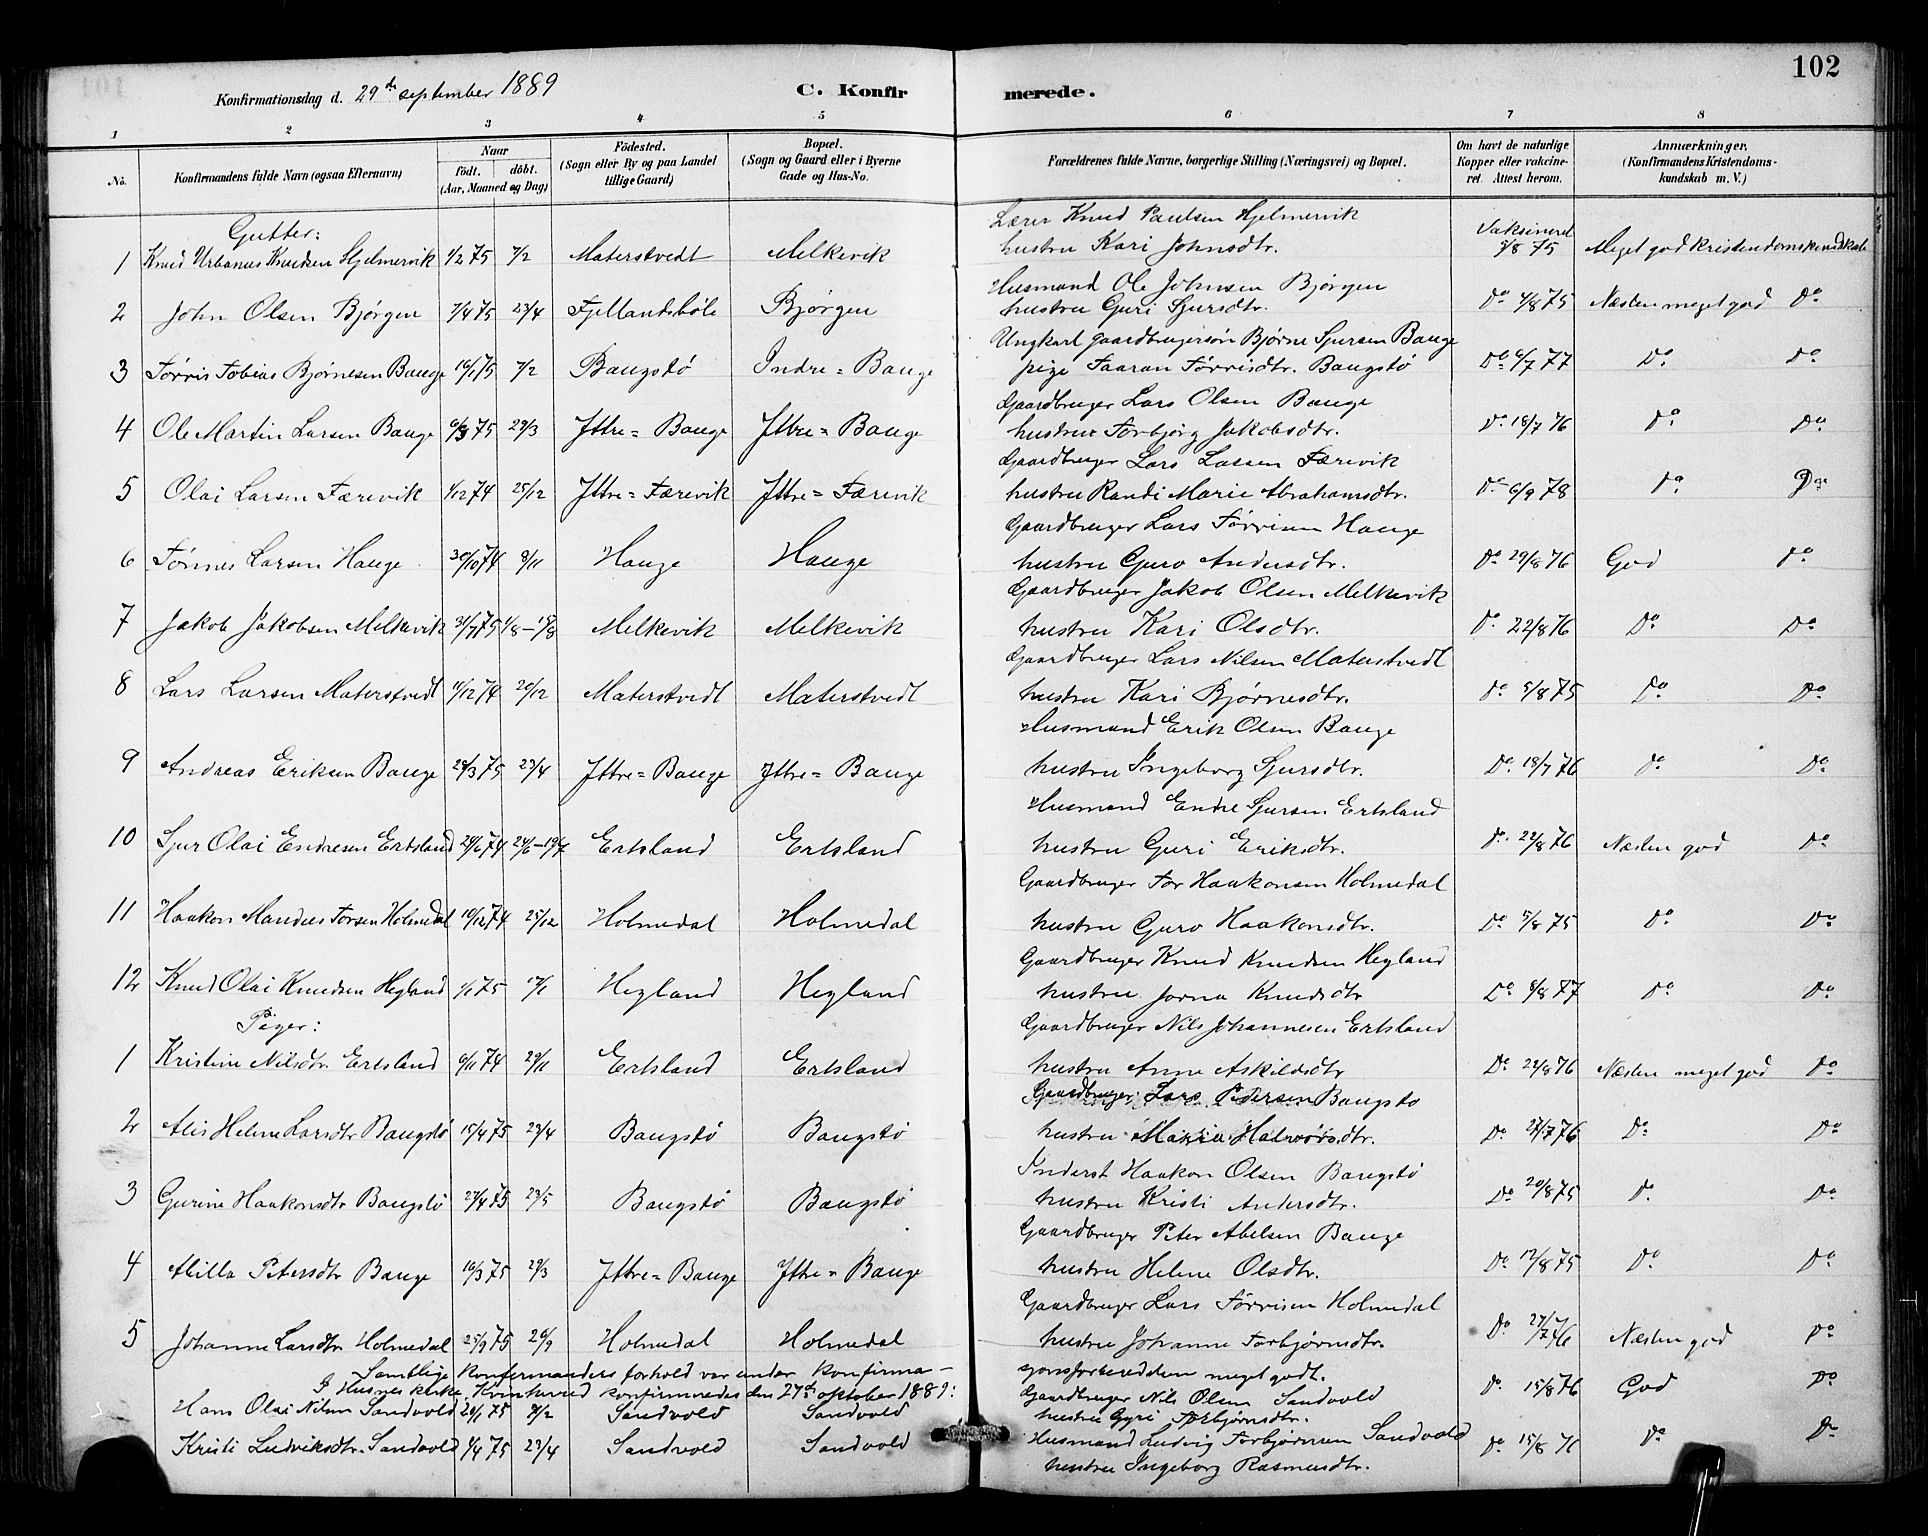 102
Konfirmationsdag d. 29de september 1889
C. Konfirmerede.
1 2 3 4 5 6 7 8
No. Konfirmandens fulde Navn (ogsaa Efternavn) Naar födt. döbt. (Aar, Maaned og Dag) Födested. (Sogn eller By og paa Landet tillige Gaard) Bopæl. (Sogn og Gaard eller i Byerne Gade og Hus-No. Forældrenes fulde Navne, borgerlige Stilling (Næringsvei) og Bopæl. Om havt de naturlige Kopper eller vakcineret. Attest herom. Anmærkninger. (Konfirmandens Kristendomskundskab m. V.)
Gutter:
Lærer Knud Paulsen Hjelmervik
1 Knud Urbanus Knudsen Hjelmervik 1/2 75 7/2 Materstvedt Melkevik hustru Kari Johnsdtr. Vaksinered 5/8 75 Meget god Kristendomskundskab
Husmand Ole Johnsen Bjørgen
2 John Olsen Bjørgen 7/4 75 23/4 Fjellandsböle Bjørgen hustru Guri Sjursdtr. Do 4/8 75 Næsten meget god Do
Ungkarl gaardbrugersön Bjørne Sjursen Bauge
3 Tørris Tobias Bjørnesen Bauge 16/1 75 7/2 Baugstö Indre = Bauge pige Taaran Tørrisdtr. Baugstö Do 6/7 77 Do Do
Gaardbruger Lars Olsen Bauge
4 Ole Martin Larsen Bauge 6/3 75 29/3 Ittre = Bauge Ittre = Bauge hustru Torbjørg Jakobsdtr. Do 18/7 76 Do Do
Gaardbruger Lars Larsen Færevik
5 Olai Larsen Færevik 1/12 74 25/12 Ittre = Færevik Ittre = Færevik hustru Randi Marie Abrahamsdtr. Do 6/9 78 Do Do
Gaardbruger Lars Tørrisen Hauge
6 Tønnes Larsen Hauge 30/10 74 8/11 Hauge Hauge hustru Guro Andersdtr. Do 29/8 76 God Do
Gaardbruger Jakob Olsen Melkevik
7 Jakob Jakobsen Melkevik 31/7 75 1/8 - 15/8 Melkevik Melkevik hustru Kari Olsdtr. Do 22/8 76 Do Do
Gaardbruger Lars Nilsen Materstvedt
8 Lars Larsen Materstvedt 11/12 74 20/12 Materstvedt Materstvedt hustru Kari Bjørnesdtr. Do 5/8 75 Do Do
Husmand Erik Olsen Bauge
9 Andreas Eriksen Bauge 28/3 75 23/4 Ittre = Bauge Ittre = Bauge hustru Ingeborg Sjursdtr. Do 18/7 76 Do Do
Husmand Endre Sjursen Ertsland
10 Sjur Olai Endresen Ertsland 24/6 74 Ertsland Ertsland hustru Guri Eriksdtr. Do 22/8 76 Næsten god Do
Gaardbruger Tor Haakonsen Holmedal
11 Haakon Mandus Torsen Holmedal 10/12 74 25/12 Holmedal Holmedal hustru Guro Haakonsdtr. Do 5/8 75 Do Do
Gaardbruger Knud Knudsen Hegland
12 Knud Olai Knudsen Hegland 1/1 75 17/1 Hegland Hegland hustru Jorna Knudsdtr Do 8/8 77 Do Do
Piger:
Gaardbruger Nils Johannesen Ertsland
1 Kristine Nilsdtr. Ertsland 6/11 74 29/11 Ertsland Ertsland hustru Anne Askildsdtr Do 22/8 76 Næsten meget god Do
Gaardbruger Lars Pedersen Baugstö
2 Alis Helene Larsdtr Baugstö 15/4 75 23/4 Baugstö Baugstö hustru Maria Halvorsdtr. Do 27/7 76 Do Do
Inderst Haakon Olsen Baugstö
3 Gurine Haakonsdtr Baugstö 27/4 75 23/5 Baugstö Baugstö hustru Kristi Andersdtr. Do 20/8 75 Do Do
Gaardbruger Peter Abelsen Bauge
4 Milla Petersdtr Bauge 16/3 75 29/3 Ittre = Bauge Ittre = Bauge hustru Helene Olsdtr. Do 17/8 75 Do Do
Gaardbruger Lars Tørrisen Holmedal
5 Johanne Larsdtr. Holmedal 25/9 75 26/9 Holmedal Holmedal hustru Johanne Torbjørnsdtr. Do 27/7 76 Næsten god Do
Samtlige konfirmanders forhold var under konfirmasjonsforberedelsen meget godt.
I Husnes kirke, Kvinherred konfirmeredes den 27de oktober 1889:
Gaardbruger Nils Olsen Sandvold
Hans Olai Nilsen Sandvold 24/1 75 7/2 Sandvold Sandvold hustru Gyri Torbjørnsdtr. Do 15/8 76 God Do
Husmand Ludvig Torbjørnsen Sandvold
Kristi Ludviksdtr. Sandvold 1/4 75 23/4 Sandvold Sandvold hustru Ingeborg Rasmusdtr. Do 15/8 76 Do Do